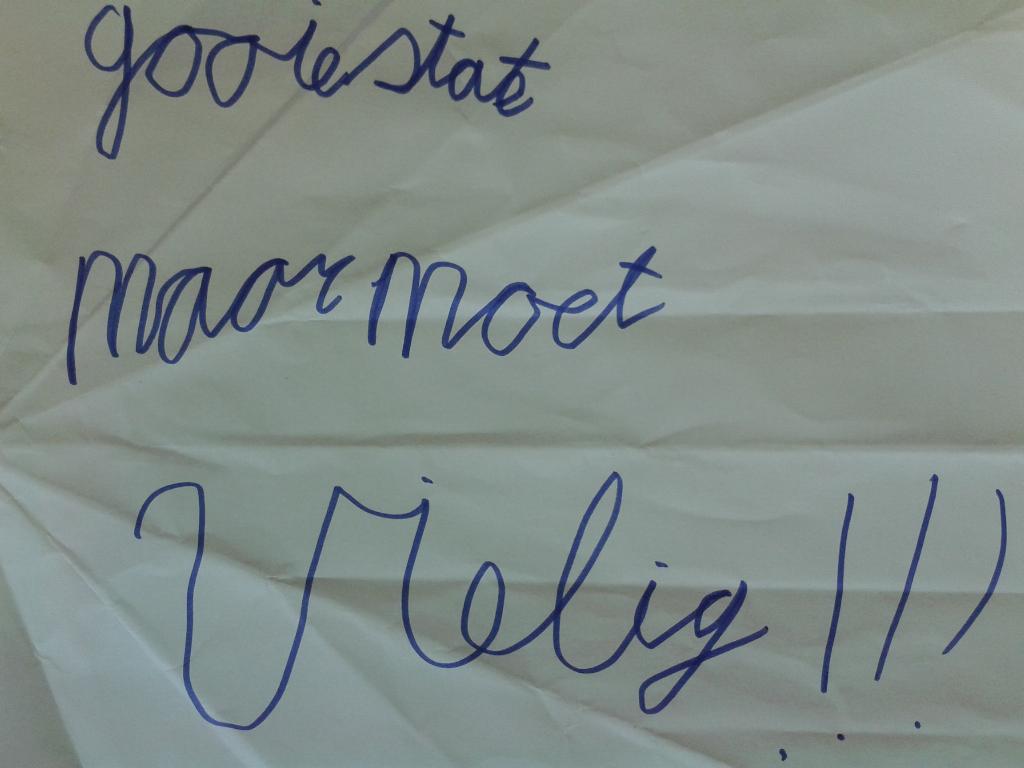 gooiestate
maar moet
Vielig!!!